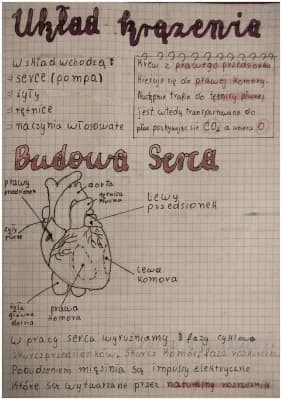 Układ krążenia
W skład wchodzą:
serce (pompa)
żyły
tętnice
naczynia włosowate
Krew z prawego przedsionka
kieruje się do prawej komory.
Następnie trafia do tętnicy płucnej
jest wtedy transportowana do
płuc pozbywając się CO₂ a zabiera O
Budowa Serca
prawy
przedsionek
aorta
tętnica
płucna
lewy
przedsionek
żyły
płucne
lewa
komora
żyła
główna
dolna
prawa
komora
W pracy serca wyróżniamy 3 fazy cyklu
skurcz przedsionków, skurcz komór, faza rozkurczu
Pobudzeniem mięśnia są impulsy elektryczne
które są wytwarzane przez naturalny rozrusznik